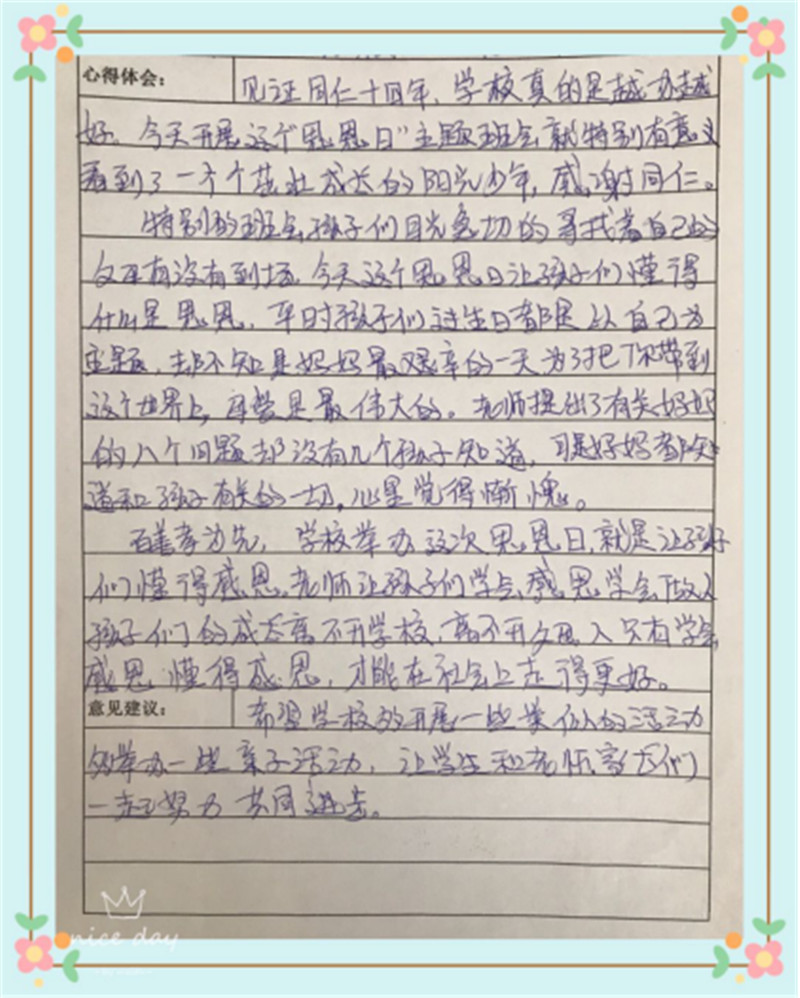 心得体会：
见证同仁十四年，学校真的是越办越
好。今天开展这个思恩日"主题班会就特别有意义
看到了一个个茁壮成长的阳光少年，感谢同仁。
特别的班会孩子们目光急切的寻找着自己的
父母有没有到场。今天这个思恩日让孩子们懂得
什么是思恩，平时孩子们过生日都是以自己为
主题，却不知是妈妈最艰辛的一天为了把你带到
这个世界上，母爱是最伟大的。老师提出了有关妈妈
的八个问题却没有几个孩子知道，可是妈妈都知
道和孩子有关的一切，心里觉得惭愧。
百善孝为先，学校举办这次思恩日，就是让孩子
们懂得感恩，老师让孩子们学会感恩学会做人
孩子们的成长离不开学校，离不开父母，人只有学会
感恩懂得感恩，才能在社会上走得更好。
意见建议：
希望学校多开展一些类似的活动
多举办一些亲子活动，让学生和老师家长们
一起努力共同进步。
nice day